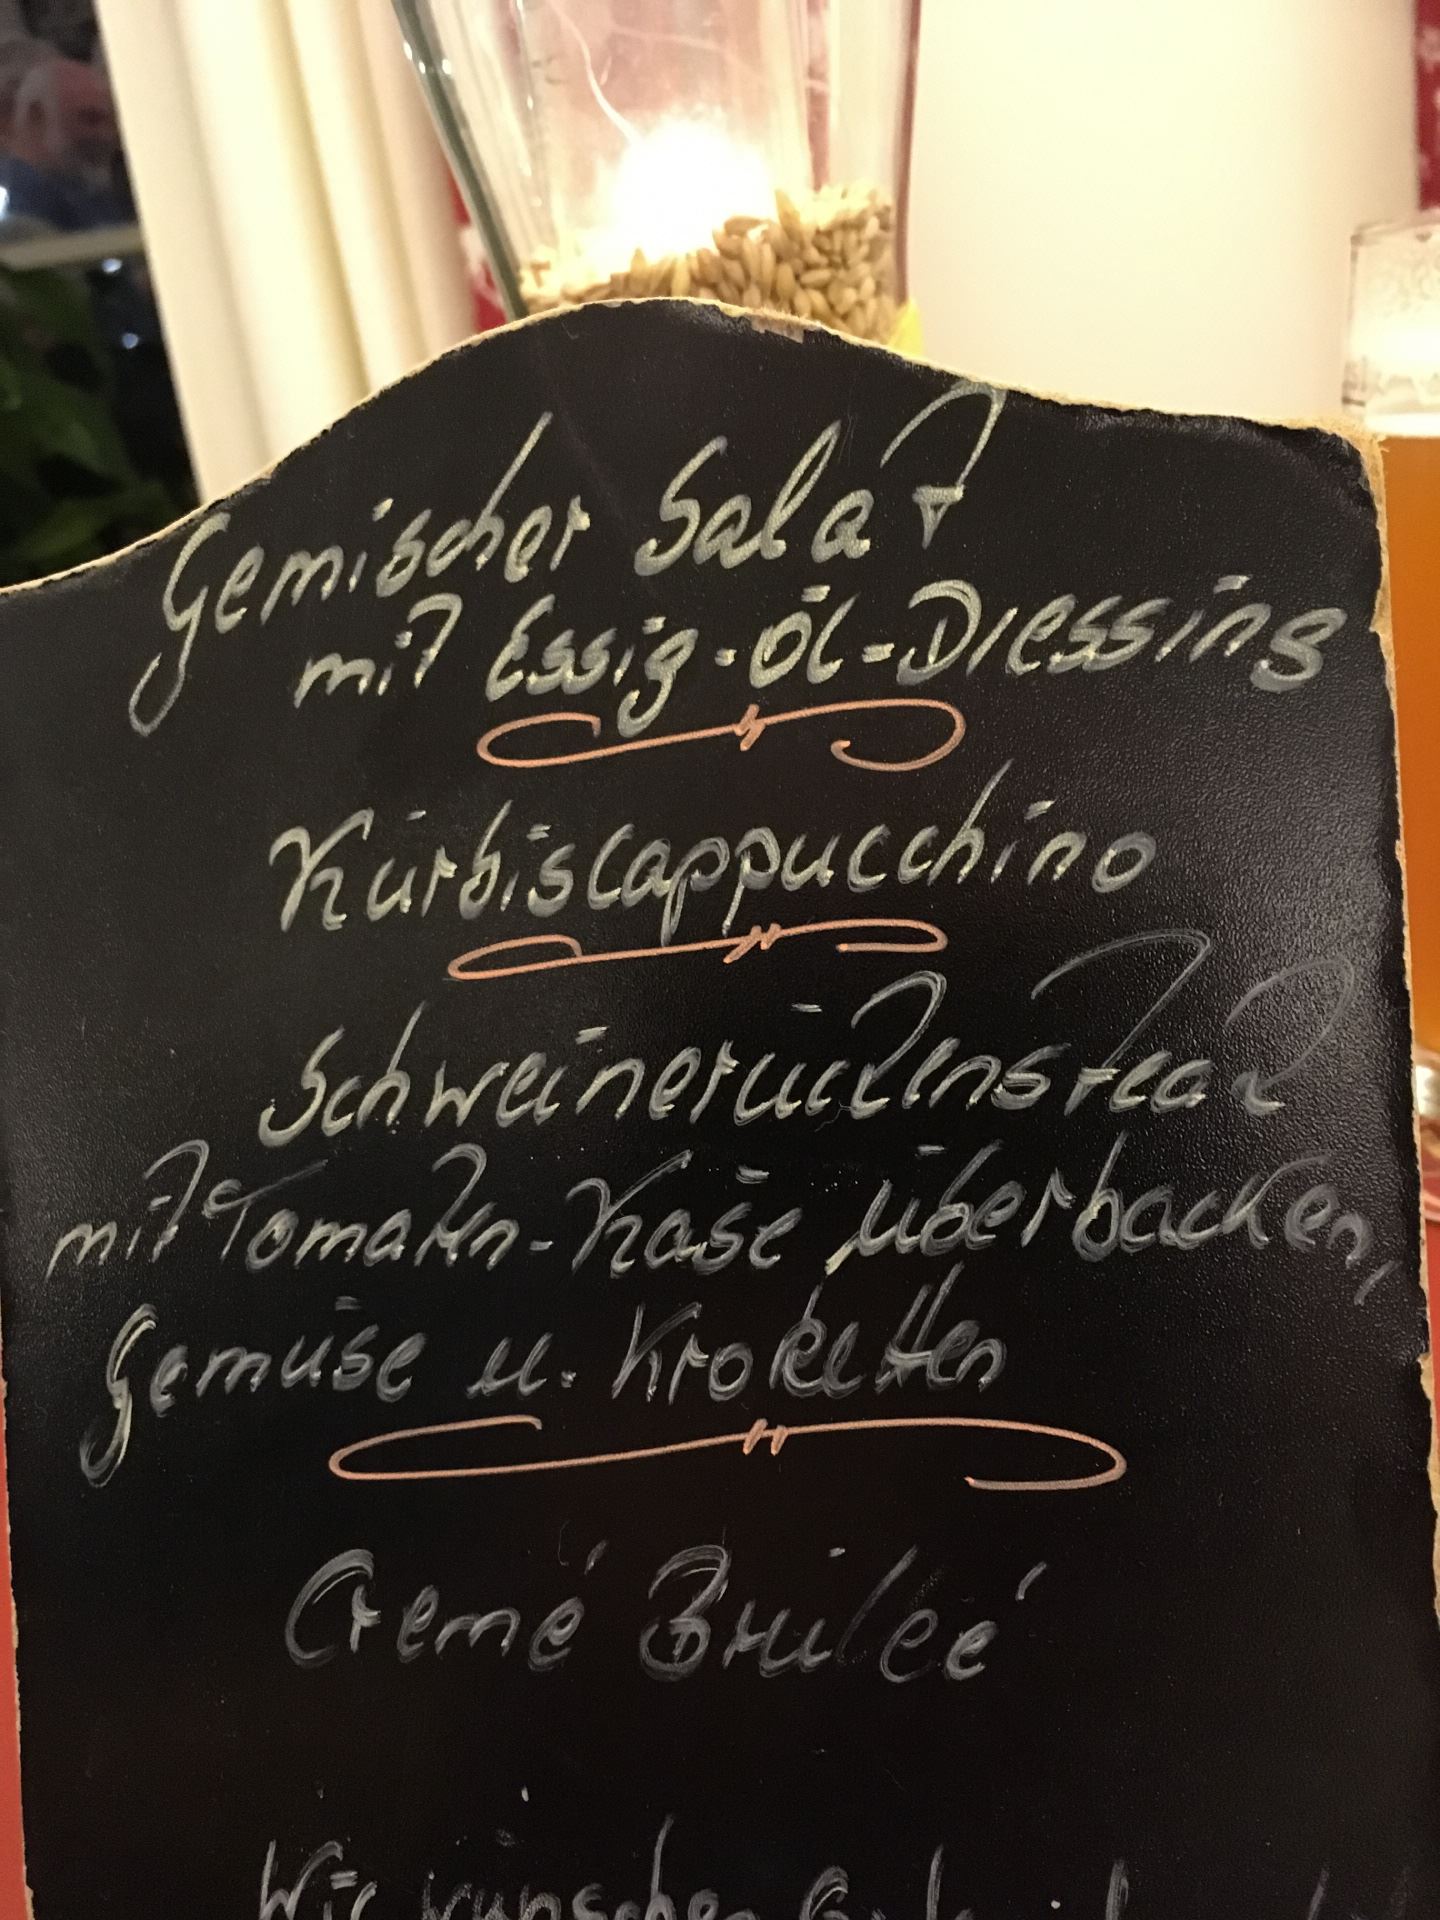 Gemischer Salat
mit Essig-Öl-Dressing
Kürbiscappucchino
Schweinerückensteak
mit Tomaten-Käse überbacken,
Gemüse u. Kroketten
Cremé Bruleé
Wir wünschen